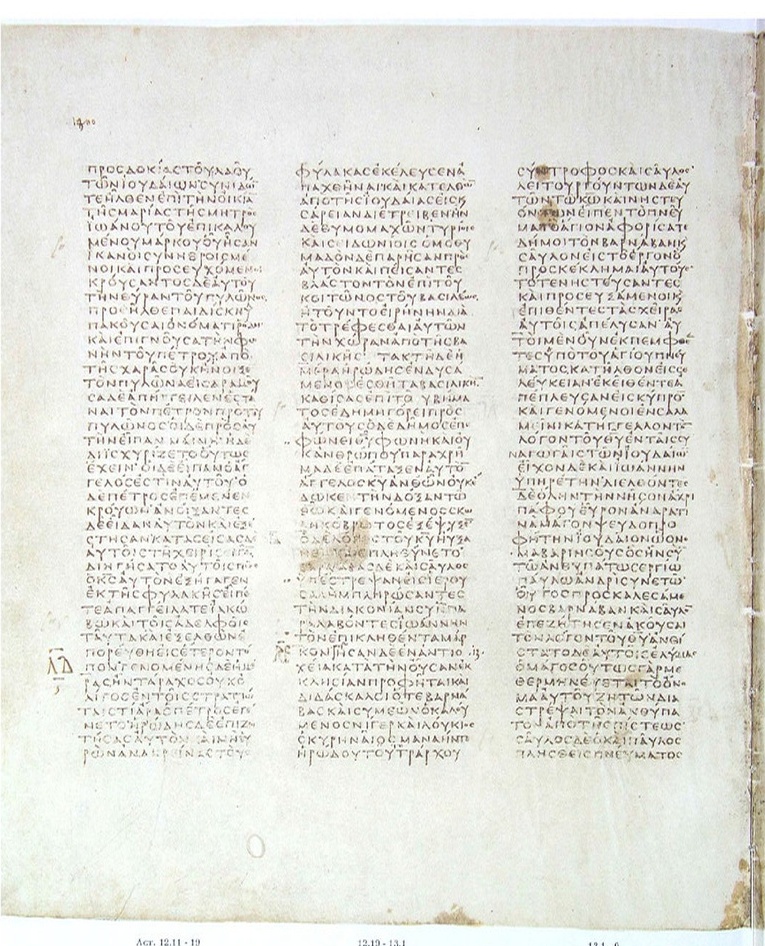 ΠΡΟϹΔΟΚΙΑϹΤΟΥΛΑΟΥ
ΤΩΝΙΟΥΔΑΙΩΝϹΥΝΙΔΩ̅
ΤΕΗΛΘΕΝΕΠΙΤΗΝΟΙΚΙΑ̅
ΤΗϹΜΑΡΙΑϹΤΗϹΜΗΤΡΟϹ
ΙΩΑΝΟΥΤΟΥΕΠΙΚΑΛΟΥ
ΜΕΝΟΥΜΑΡΚΟΥΟΥΗϹΑΝ
ΙΚΑΝΟΙϹΥΝΗΘΡΟΙϹΜΕ
ΝΟΙΚΑΙΠΡΟϹΕΥΧΟΜΕΝΟΙ
ΚΡΟΥϹΑΝΤΟϹΔΕΑΥΤΟΥ
ΤΗΝΘΥΡΑΝΤΟΥΠΥΛΩΝΟϹ
ΠΡΟΗΛΘΕΠΑΙΔΙϹΚΗΥ
ΠΑΚΟΥϹΑΙΟΝΟΜΑΤΙΡΟΔΗ
ΚΑΙΕΠΙΓΝΟΥϹΑΤΗΝΦΩ
ΝΗΝΤΟΥΠΕΤΡΟΥΑΠΟ
ΤΗϹΧΑΡΑϹΟΥΚΗΝΟΙΞΕ
ΤΟΝΠΥΛΩΝΑΕΙϹΔΡΑΜΟΥ
ϹΑΔΕΑΠΗΓΓΕΙΛΕΝΕϹΤΑ
ΝΑΙΤΟΝΠΕΤΡΟΝΠΡΟΤΟΥ
ΠΥΛΩΝΟϹΟΙΔΕΠΡΟϹΑΥ
ΤΗΝΕΙΠΑΝΜΑΙΝΗΗΔΕ
ΔΙΙϹΧΥΡΙΖΕΤΟΟΥΤΩϹ
ΕΧΕΙΝΟΙΔΕΕΙΠΑΝΟΑΓ
ΓΕΛΟϹΕϹΤΙΝΑΥΤΟΥΟ
ΔΕΠΕΤΡΟϹΕΠΕΜΕΝΕΝ
ΚΡΟΥΩΝΑΝΟΙΞΑΝΤΕϹ
ΔΕΕΙΔΑΝΑΥΤΟΝΚΑΙΕΞΕ
ϹΤΗϹΑΝΚΑΤΑϹΕΙϹΑϹΔΕ
ΑΥΤΟΙϹΤΗΧΕΙΡΙϹΕΙΓΑ̅
ΔΙΗΓΗϹΑΤΟΑΥΤΟΙϹΠΩϹ
ΟΚ̅Ϲ̅ΑΥΤΟΝΕΞΗΓΑΓΕΝ
ΕΚΤΗϹΦΥΛΑΚΗϹΕΙΠΕ̅
ΤΕΑΠΑΓΓΕΙΛΑΤΕΙΑΚΩ
ΒΩΚΑΙΤΟΙϹΑΔΕΛΦΟΙϹ
ΤΑΥΤΑΚΑΙΕΞΕΛΘΩΝΕ
ΠΟΡΕΥΘΗΕΙϹΕΤΕΡΟΝΤΟ
ΛΔ ΠΟΝΓΕΝΟΜΕΝΗϹΔΕΗΜΕ
ΡΑϹΗΝΤΑΡΑΧΟϹΟΥΚΟ
ΛΙΓΟϹΕΝΤΟΙϹϹΤΡΑΤΙΩ
ΤΑΙϹΤΙΑΡΑΟΠΕΤΡΟϹΕΓΕ
ΝΕΤΟΗΡΩΔΗϹΔΕΕΠΙΖΗ
ΤΗϹΑϹΑΥΤΟΝΚΑΙΜΗΕΥ
ΡΩΝΑΝΑΚΡΕΙΝΑϹΤΟΥϹ
ΦΥΛΑΚΑϹΕΚΕΛΕΥϹΕΝΑ
ΠΑΧΘΗΝΑΙΚΑΙΚΑΤΕΛΘΩ̅
ΑΠΟΤΗϹΙΟΥΔΑΙΑϹΕΙϹΚΑΙ
ϹΑΡΕΙΑΝΔΙΕΤΡΕΙΒΕΝΗΝ
ΔΕΘΥΜΟΜΑΧΩΝΤΥΡΙΟΙϹ
ΚΑΙϹΕΙΔΩΝΙΟΙϹΟΜΟΘΥ
ΜΑΔΟΝΔΕΠΑΡΗϹΑΝΠΡΟϹ
ΑΥΤΟΝΚΑΙΠΕΙϹΑΝΤΕϹ
ΒΛΑϹΤΟΝΤΟΝΕΠΙΤΟΥ
ΚΟΙΤΩΝΟϹΤΟΥΒΑϹΙΛΕΩϹ
ΗΤΟΥΝΤΟΕΙΡΗΝΗΝΔΙΑ
ΤΟΤΡΕΦΕϹΘΑΙΑΥΤΩΝ
ΤΗΝΧΩΡΑΝΑΠΟΤΗϹΒΑ
ϹΙΛΙΚΗϹΤΑΚΤΗΔΕΗ
ΜΕΡΑΗΡΩΔΗϹΕΝΔΥϹΑ
ΜΕΝΟϹΕϹΘΗΤΑΒΑϹΙΛΙΚΗ̅
ΚΑΘΙϹΑϹΕΠΙΤΟΥΒΗΜΑ
ΤΟϹΕΔΗΜΗΓΟΡΕΙΠΡΟϹ
ΑΥΤΟΥϹΟΔΕΔΗΜΟϹΕΠΕ
ΦΩΝΕΙΘΥ̅ΦΩΝΗΚΑΙΟΥ
ΚΑΝΘΡΩΠΟΥΠΑΡΑΧΡΗ
ΜΑΔΕΕΠΑΤΑΞΕΝΑΥΤΟ̅
ΑΓΓΕΛΟϹΚΥ̅ΑΝΘΩΝΟΥΚΕ
ΔΩΚΕΝΤΗΝΔΟΞΑΝΤΩ
ΘΩ̅ΚΑΙΓΕΝΟΜΕΝΟϹϹΚΩ
ΛΗΚΟΒΡΩΤΟϹΕΞΕΨΥΞΕ̅
ΟΔΕΛΟΓΟϹΤΟΥΚΥ̅ΗΥΞΑ
ΝΕΝΚΑΙΕΠΛΗΘΥΝΕΤΟ
ΒΑΡΝΑΒΑϹΔΕΚΑΙϹΑΥΛΟϹ
ΥΠΕϹΤΡΕΨΑΝΕΙϹΙΕΡΟΥ
ϹΑΛΗΜΠΛΗΡΩϹΑΝΤΕϹ
ΤΗΝΔΙΑΚΟΝΙΑΝϹΥΝΠΑ
ΡΑΛΑΒΟΝΤΕϹΙΩΑΝΝΗΝ
ΤΟΝΕΠΙΚΛΗΘΕΝΤΑΜΑΡ
ΚΟΝΗϹΑΝΔΕΕΝΑΝΤΙΟ
ΧΕΙΑΚΑΤΑΤΗΝΟΥϹΑΝΕΚ
ΚΛΗϹΙΑΝΠΡΟΦΗΤΑΙΚΑΙ
ΔΙΔΑϹΚΑΛΟΙΟΤΕΒΑΡΝΑ
ΒΑϹΚΑΙϹΥΜΕΩΝΟΚΑΛΟΥ
ΜΕΝΟϹΝΙΓΕΡΚΑΙΛΟΥΚΙΟϹ
ΟΚΥΡΗΝΑΙΟϹΜΑΝΑΗΝΤΕ
ΗΡΩΔΟΥΤΟΥΤΡΑΡΧΟΥ
ϹΥΝΤΡΟΦΟϹΚΑΙϹΑΥΛΟϹ
ΛΕΙΤΟΥΡΓΟΥΝΤΩΝΔΕΑΥ
ΤΩΝΤΩΚΩ̅ΚΑΙΝΗϹΤΕΥ
ΟΝΤΩΝΕΙΠΕΝΤΟΠΝΕΥ
ΜΑΤΟΑΓΙΟΝΑΦΟΡΙϹΑΤΕ
ΔΗΜΟΙΤΟΝΒΑΡΝΑΒΑΝΚΑΙ
ϹΑΥΛΟΝΕΙϹΤΟΕΡΓΟΝΟ
ΠΡΟϹΚΕΚΛΗΜΑΙΑΥΤΟΥϹ
ΤΟΤΕΝΗϹΤΕΥϹΑΝΤΕϹ
ΚΑΙΠΡΟϹΕΥΞΑΜΕΝΟΙΚΑΙ
ΕΠΙΘΕΝΤΕϹΤΑϹΧΕΙΡΑϹ
ΑΥΤΟΙϹΑΠΕΛΥϹΑΝΑΥ
ΤΟΙΜΕΝΟΥΝΕΚΠΕΜΦΘΕ̅
ΤΕϹΥΠΟΤΟΥΑΓΙΟΥΠΝΕΥ
ΜΑΤΟϹΚΑΤΗΛΘΟΝΕΙϹϹΕ
ΛΕΥΚΕΙΑΝΕΚΕΙΘΕΝΤΕΑ
ΠΕΠΛΕΥϹΑΝΕΙϹΚΥΠΡΟ̅
ΚΑΙΓΕΝΟΜΕΝΟΙΕΝϹΑΛΑ
ΜΕΙΝΙΚΑΤΗΓΓΕΛΛΟΝΤΟ̅
ΛΟΓΟΝΤΟΥΘΥ̅ΕΝΤΑΙϹϹΥ
ΝΑΓΩΓΑΙϹΤΩΝΙΟΥΔΑΙΩ̅
ΕΙΧΟΝΔΕΚΑΙΙΩΑΝΝΗΝ
ΥΠΗΡΕΤΗΝΔΙΕΛΘΟΝΤΕϹ
ΔΕΟΛΗΝΤΗΝΝΗϹΟΝΑΧΡΙ
ΠΑΦΟΥΕΥΡΟΝΑΝΔΡΑΤΙ
ΝΑΜΑΓΟΝΨΕΥΔΟΠΡΟ
ΦΗΤΗΝΙΟΥΔΑΙΟΝΩΟΝΟ
ΜΑΒΑΡΙΗϹΟΥϹΟϹΗΝϹΥ̅
ΤΩΑΝΘΥΠΑΤΩϹΕΡΓΙΩ
ΠΑΥΛΩΑΝΔΡΙϹΥΝΕΤΩ
ΟΥΤΟϹΠΡΟϹΚΑΛΕϹΑΜΕ
ΝΟϹΒΑΡΝΑΒΑΝΚΑΙϹΑΥΛΟ̅
ΕΠΕΖΗΤΗϹΕΝΑΚΟΥϹΑΙ
ΤΟΝΛΟΓΟΝΤΟΥΘΥ̅ΑΝΘΙ
ϹΤΑΤΟΔΕΑΥΤΟΙϹΕΛΥΜΑϹ
ΟΜΑΓΟϹΟΥΤΩϹΓΑΡΜΕ
ΘΕΡΜΗΝΕΥΕΤΑΙΤΟΟΝΟ
ΜΑΑΥΤΟΥΖΗΤΩΝΔΙΑ
ϹΤΡΕΨΑΙΤΟΝΑΝΘΥΠΑ
ΤΟΝΑΠΟΤΗϹΠΙϹΤΕΩϹ
ϹΑΥΛΟϹΔΕΟΚΑΙΠΑΥΛΟϹ
ΠΛΗϹΘΕΙϹΠΝΕΥΜΑΤΟϹ
Act. 12.11 - 19
12.19 - 13.1